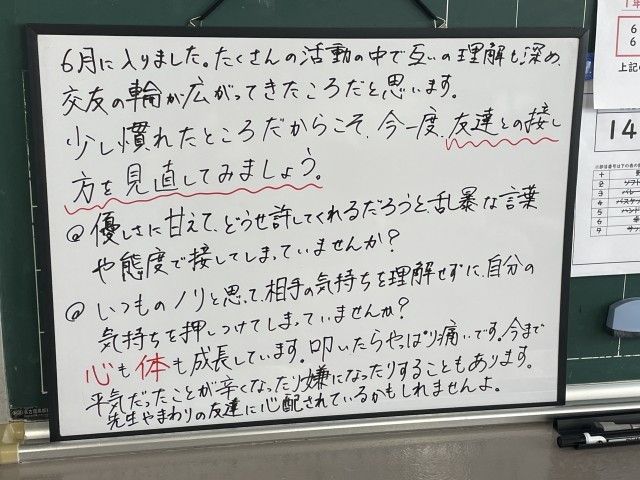 6月に入りました。たくさんの活動の中で互いの理解も深め、
交友の輪が広がってきたころだと思います。
少し慣れたところだからこそ、今一度、友達との接し
方を見直してみましょう。
@ 優しさに甘えて、どうせ許してくれるだろうと、乱暴な言葉
や態度で接してしまっていませんか?
@ いつものノリと思って、相手の気持ちを理解せずに、自分の
気持ちを押しつけてしまっていませんか?
心も体も成長しています。叩いたらやっぱり痛いです。今まで
平気だったことが辛くなったり嫌になったりすることもあります。
先生やまわりの友達に心配されているかもしれませんよ。
1年
6
6
上記の
14
+
2 ソフト
3 バレー
4 バスケット
5 ハンド
6
7 サッ